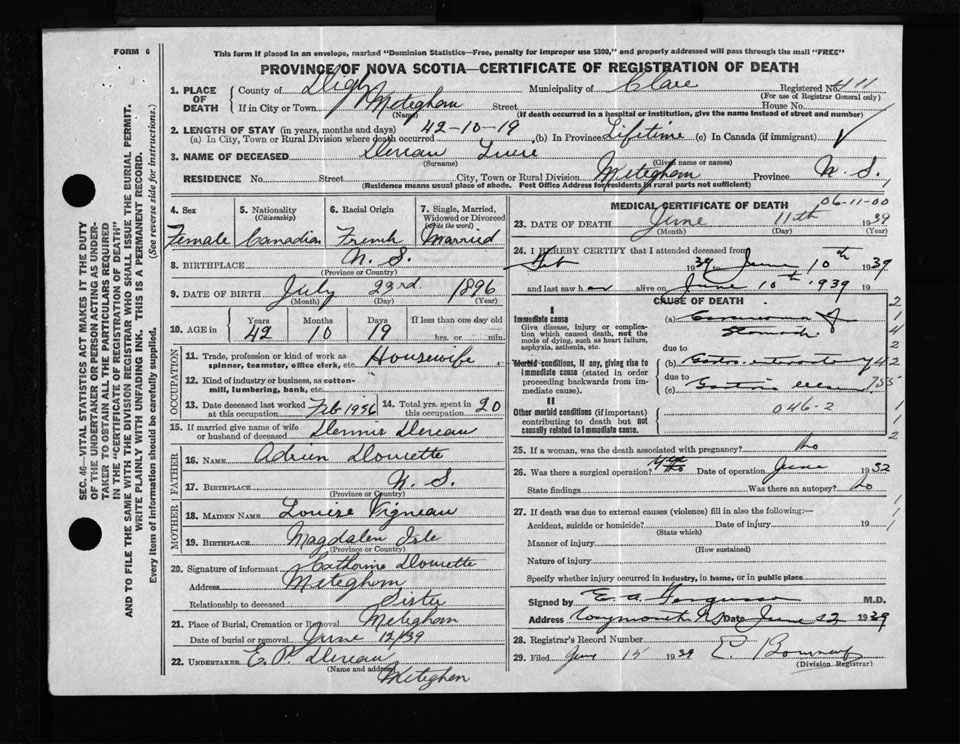 FORM 6
This form if placed in an envelope, marked "Dominion Statistics—Free, penalty for improper use $300," and properly addressed will pass through the mail "FREE"
PROVINCE OF NOVA SCOTIA—CERTIFICATE OF REGISTRATION OF DEATH
1. PLACE OF DEATH County of Digby Municipality of Clare Registered No. 411
(For use of Registrar General only)
If in City or Town Meteghan Street House No.
(Name) (If death occurred in a hospital or institution, give the name instead of street and number)
2. LENGTH OF STAY (in years, months and days)
(a) In City, Town or Rural Division where death occurred 42-10-19 (b) In Province Lifetime (c) In Canada (if immigrant)
3. NAME OF DECEASED
(Surname) (Given name or names)
RESIDENCE No. Street City, Town or Rural Division Meteghan Province N. S.
(Residence means usual place of abode. Post Office Address for residents in rural parts not sufficient)
4. Sex Female
5. Nationality (Citizenship) Canadian
6. Racial Origin French
7. Single, Married, Widowed or Divorced (write the word) Married
8. BIRTHPLACE N. S.
(Province or Country)
9. DATE OF BIRTH July 23rd 1896
(Month) (Day) (Year)
10. AGE in Years Months Days If less than one day old
42 10 19 hrs. or min.
OCCUPATION
11. Trade, profession or kind of work as spinner, teamster, office clerk, etc. Housewife
12. Kind of industry or business, as cotton-mill, lumbering, bank, etc.
13. Date deceased last worked at this occupation Feb 1936 14. Total yrs. spent in this occupation 20
15. If married give name of wife or husband of deceased Dennis
FATHER
16. NAME Adrien Doucette
17. BIRTHPLACE N. S.
(Province or Country)
MOTHER
18. MAIDEN NAME Louise Vigneau
19. BIRTHPLACE Magdalen Isle
(Province or Country)
20. Signature of informant Catherine Doucette
Address Meteghan
Relationship to deceased Sister
21. Place of Burial, Cremation or Removal Meteghan
Date of burial or removal June 12/39
22. UNDERTAKER E. P.
(Name and address) Meteghan
MEDICAL CERTIFICATE OF DEATH 06-11-00
23. DATE OF DEATH June 11th 1939
(Month) (Day) (Year)
24. I HEREBY CERTIFY that I attended deceased from
Feb 1939 to June 10th 1939
and last saw her alive on June 10th 1939 19
CAUSE OF DEATH
I
Immediate cause
Give disease, injury or complication which caused death, not the mode of dying, such as heart failure, asphyxia, asthenia, etc.
(a) Carcinoma of Stomach
due to
Morbid conditions, if any, giving rise to immediate cause (stated in order proceeding backwards from immediate cause).
(b)
due to
(c) Gastric ulcer
II
Other morbid conditions (if important) contributing to death but not causally related to immediate cause.
046-2
25. If a woman, was the death associated with pregnancy? No
26. Was there a surgical operation? Yes Date of operation June 1932
State findings Was there an autopsy? No
27. If death was due to external causes (violence) fill in also the following:—
Accident, suicide or homicide? Date of injury 19
(State which)
Manner of injury
(How sustained)
Nature of injury
Specify whether injury occurred in industry, in home, or in public place
Signed by M.D.
Address Date June 1939
28. Registrar's Record Number
29. Filed June 15 1939
(Division Registrar)
SEC. 46—VITAL STATISTICS ACT MAKES IT THE DUTY
OF THE UNDERTAKER OR PERSON ACTING AS UNDER-
TAKER TO OBTAIN ALL THE PARTICULARS REQUIRED
IN THE "CERTIFICATE OF REGISTRATION OF DEATH"
AND TO FILE THE SAME WITH THE DIVISION REGISTRAR WHO SHALL ISSUE THE BURIAL PERMIT.
WRITE PLAINLY WITH UNFADING INK. THIS IS A PERMANENT RECORD.
Every item of information should be carefully supplied. (See reverse side for instructions.)